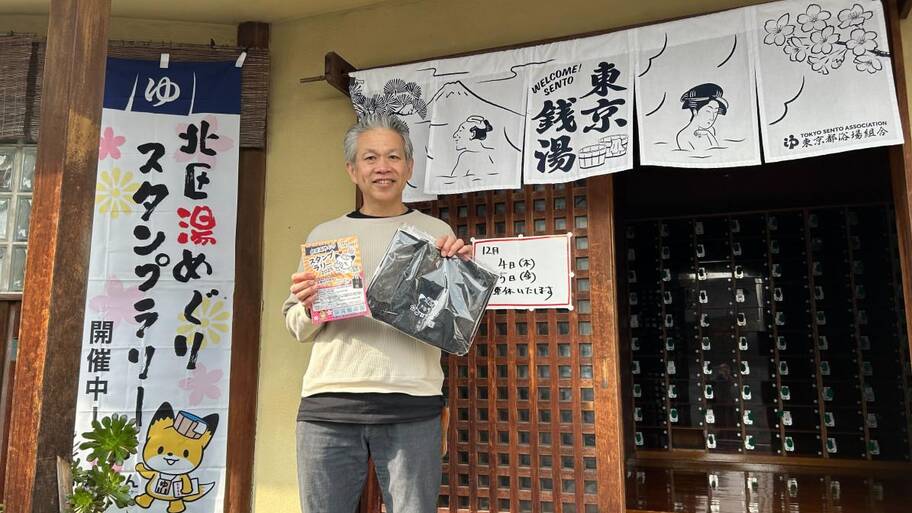 ゆ
北区湯めぐり
スタンプラリー
開催中！
WELCOME!
SENTO
東京
銭湯
TOKYO SENTO ASSOCIATION
ゆ 東京都浴場組合
スタンプ
ラリー
12月
4日(木)
5日(金)
連休いたします